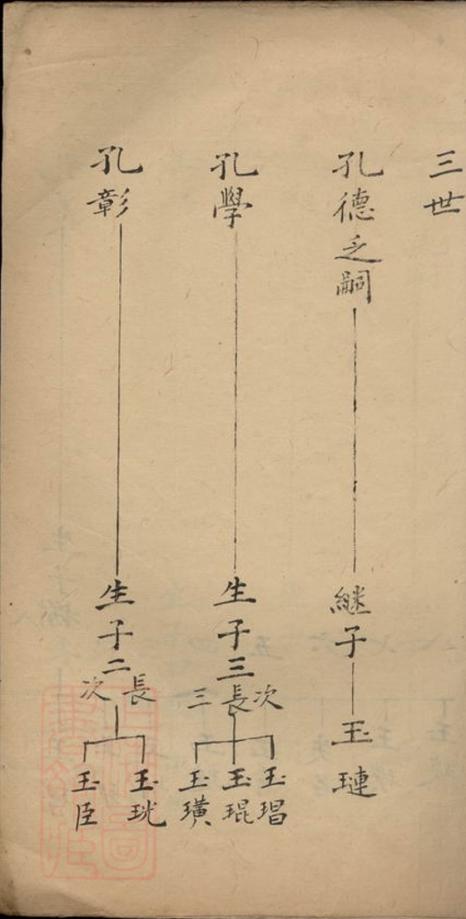 三世
孔德乏嗣
継子
玉璉
孔學
生子三
次 長 三
玉琩 玉琨 玉璜
孔彰
生子二
長 次
玉珖 玉臣